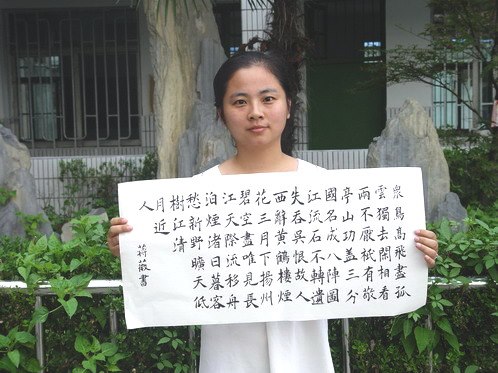 衆鳥高飛盡孤
雲獨去閑相看
兩不厭祇有敬
亭山功盖三分
國名成八陣圖
江流石不轉遺
失吞吳恨故人
西辭黄鶴樓煙
花三月下揚州
碧空盡唯見長
江天際流移舟
泊煙渚日暮客
愁新野曠天低
樹江清
月近
人
蔣薇書